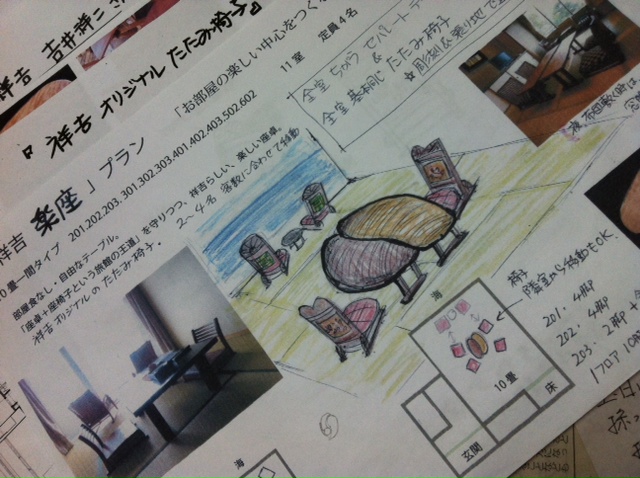 祥吉 吉井祥二
『祥吉 オリジナル たたみ椅子』
「お部屋の楽しい中心をつく
11室 定員4名
全室 ちがう セパレートテ
&
全室 基本同じ たたみ椅子
☆彫刻&乗り地で
祥吉 楽座 」プラン
10畳一間タイプ 201.202.203. 301.302.303.401.402.403.502.602
部屋食なし・自由なテーブル。
「座卓+座椅子という旅館の王道」を守りつつ、祥吉らしい、楽しい座卓。
祥吉オリジナルの たたみ椅子。
2~4名 客数に合わせて移動
海
10畳
床
玄関
椅子
隣室から移動もOK
201. 4脚
202. 4脚
203. 2脚 +
1フロア 10
⑤
海